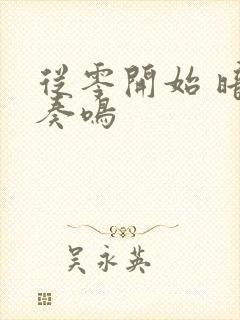 從零開始 暗
奏鳴
吳永英